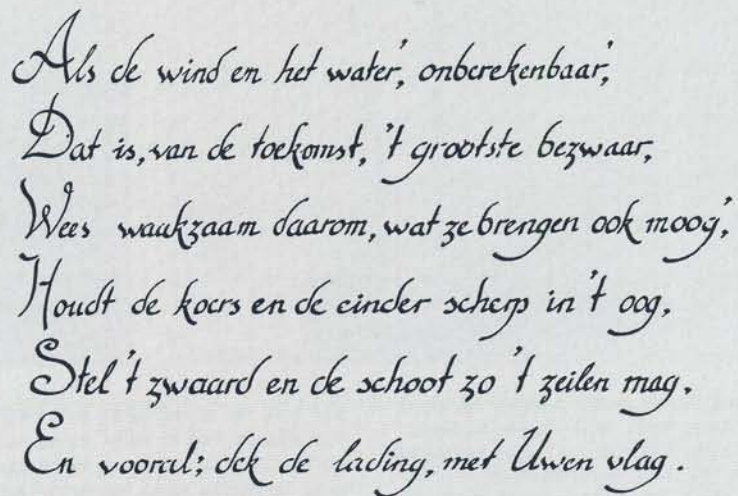 Als de wind en het water, onberekenbaar,
Dat is, van de toekomst, 't grootste bezwaar,
Wees waakzaam daarom, wat ze brengen ook moog',
Houdt de koers en de einder scherp in 't oog,
Stel 't zwaard en de schoot zo 't zeilen mag.
En vooral; dek de lading, met Uwen vlag.